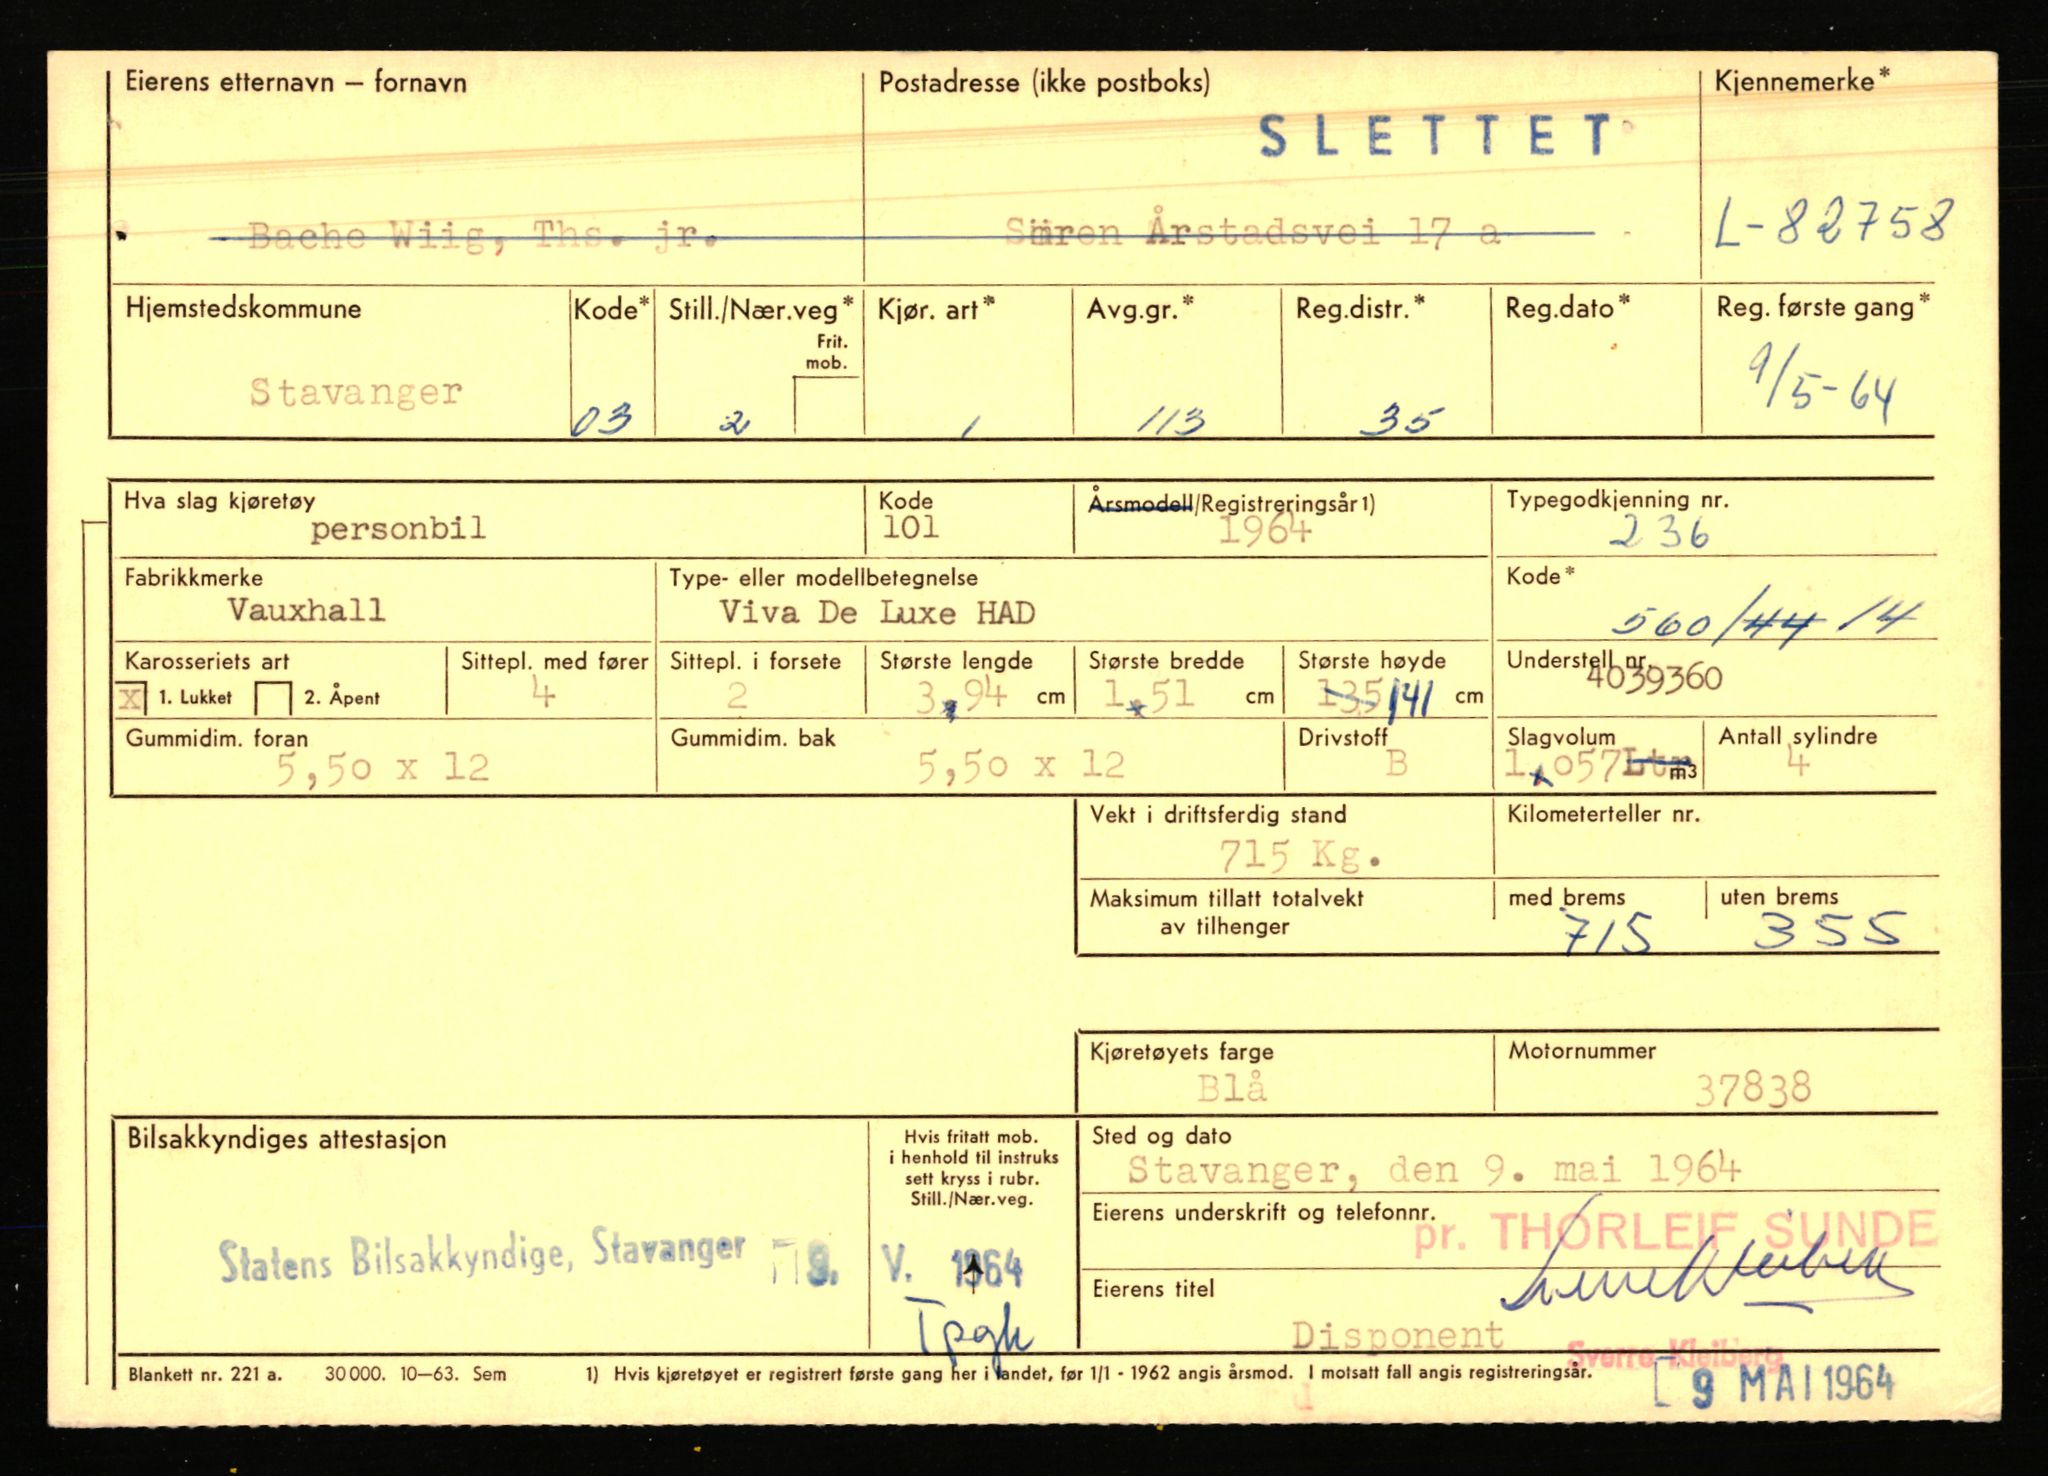 Eierens etternavn – fornavn
Postadresse (ikke postboks)
Kjennemerke*
SLETTET
Bache Wiig, Ths. jr.
Sören Årstadsvei 17 a
L-82758
Hjemstedskommune
Kode*
Still./Nær.veg*
Frit.
mob.
Kjør. art*
Avg.gr.*
Reg.distr.*
Reg.dato*
Reg. første gang*
Stavanger
03
2
1
113
35
9/5-64
Hva slag kjøretøy
Kode
Årsmodell/Registreringsår1)
Typegodkjenning nr.
personbil
101
1964
236
Fabrikkmerke
Type- eller modellbetegnelse
Kode*
Vauxhall
Viva De Luxe HAD
560/44 /4
Karosseriets art
Sittepl. med fører
Sittepl. i forsete
Største lengde
Største bredde
Største høyde
Understell nr.
X 1. Lukket
2. Åpent
4
2
3,94 cm
1,51 cm
135 141 cm
4039360
Gummidim. foran
Gummidim. bak
Drivstoff
Slagvolum
Antall sylindre
5,50 x 12
5,50 x 12
B
1,057 Ltr m3
4
Vekt i driftsferdig stand
Kilometerteller nr.
715 Kg.
Maksimum tillatt totalvekt
av tilhenger
med brems
uten brems
715
355
Kjøretøyets farge
Motornummer
Blå
37838
Bilsakkyndiges attestasjon
Hvis fritatt mob.
i henhold til instruks
sett kryss i rubr.
Still./Nær.veg.
Sted og dato
Stavanger, den 9. mai 1964
Eierens underskrift og telefonnr.
pr. THORLEIF SUNDE
Statens Bilsakkyndige, Stavanger
9. V. 1964
Eierens titel
Disponent
Sverre Kleiberg
Blankett nr. 221 a. 30000. 10–63. Sem
1) Hvis kjøretøyet er registrert første gang her i landet, før 1/1 - 1962 angis årsmod. I motsatt fall angis registreringsår.
9 MAI 1964